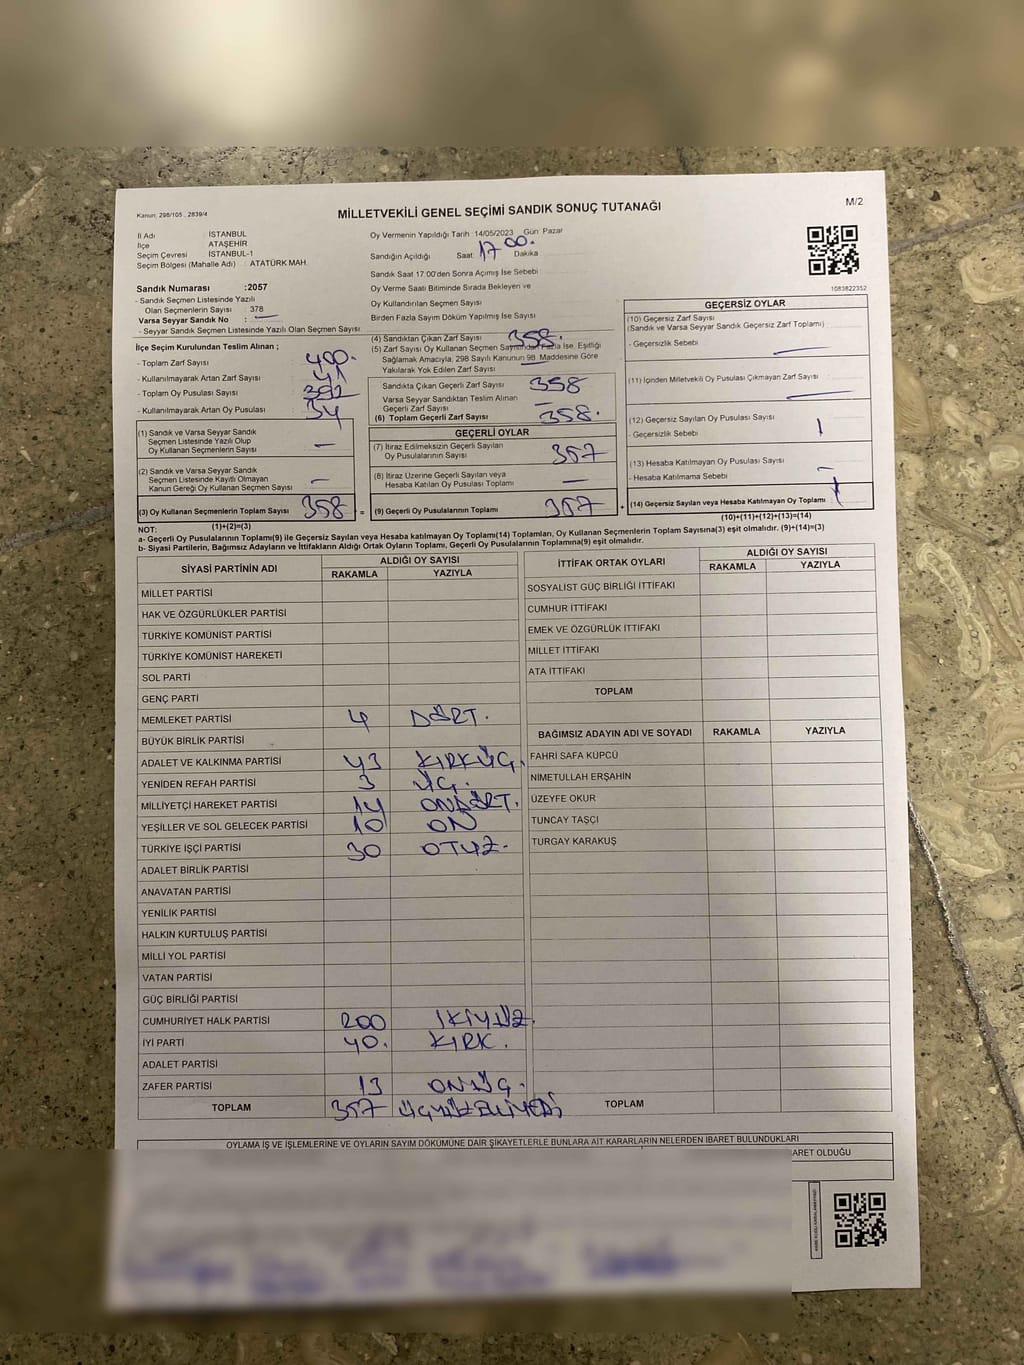 Kanun: 298/105 , 2839/4
MİLLETVEKİLİ GENEL SEÇİMİ SANDIK SONUÇ TUTANAĞI
M/2
İl Adı : İSTANBUL
İlçe : ATAŞEHİR
Seçim Çevresi : İSTANBUL-1
Seçim Bölgesi (Mahalle Adı) : ATATÜRK MAH.
Oy Vermenin Yapıldığı Tarih : 14/05/2023 Gün Pazar
Sandığın Açıldığı Saat 17 00. Dakika
Sandık Saat 17.00'den Sonra Açımış İse Sebebi
Sandık Numarası : 2057
- Sandık Seçmen Listesinde Yazılı
Olan Seçmenlerin Sayısı : 378
Varsa Seyyar Sandık No : —
- Seyyar Sandık Seçmen Listesinde Yazılı Olan Seçmen Sayısı
Oy Verme Saati Bitiminde Sırada Bekleyen ve
Oy Kullandırılan Seçmen Sayısı
Birden Fazla Sayım Döküm Yapılmış İse Sayısı
1083822352
İlçe Seçim Kurulundan Teslim Alınan ;
- Toplam Zarf Sayısı 400.
- Kullanılmayarak Artan Zarf Sayısı
- Toplam Oy Pusulası Sayısı
- Kullanılmayarak Artan Oy Pusulası 34
(1) Sandık ve Varsa Seyyar Sandık
Seçmen Listesinde Yazılı Olup
Oy Kullanan Seçmenlerin Sayısı —
(2) Sandık ve Varsa Seyyar Sandık
Seçmen Listesinde Kayıtlı Olmayan
Kanun Gereği Oy Kullanan Seçmen Sayısı —
(3) Oy Kullanan Seçmenlerin Toplam Sayısı 358
(1)+(2)=(3)
(4) Sandıktan Çıkan Zarf Sayısı 358.
(5) Zarf Sayısı Oy Kullanan Seçmen Sayısından Fazla İse, Eşitliği
Sağlamak Amacıyla, 298 Sayılı Kanunun 98. Maddesine Göre
Yakılarak Yok Edilen Zarf Sayısı —
Sandıkta Çıkan Geçerli Zarf Sayısı 358
Varsa Seyyar Sandıktan Teslim Alınan
Geçerli Zarf Sayısı —
(6) Toplam Geçerli Zarf Sayısı 358.
GEÇERLİ OYLAR
(7) İtiraz Edilmeksizin Geçerli Sayılan
Oy Pusulalarının Sayısı 357
(8) İtiraz Üzerine Geçerli Sayılan veya
Hesaba Katılan Oy Pusulası Toplamı —
(9) Geçerli Oy Pusulalarının Toplamı 357
GEÇERSİZ OYLAR
(10) Geçersiz Zarf Sayısı
(Sandık ve Varsa Seyyar Sandık Geçersiz Zarf Toplamı)
- Geçersizlik Sebebi —
(11) İçinden Milletvekili Oy Pusulası Çıkmayan Zarf Sayısı
—
(12) Geçersiz Sayılan Oy Pusulası Sayısı
- Geçersizlik Sebebi 1
(13) Hesaba Katılmayan Oy Pusulası Sayısı
- Hesaba Katılmama Sebebi —
(14) Geçersiz Sayılan veya Hesaba Katılmayan Oy Toplamı 1
(10)+(11)+(12)+(13)=(14)
NOT:
a- Geçerli Oy Pusulalarının Toplamı(9) ile Geçersiz Sayılan veya Hesaba katılmayan Oy Toplamı(14) Toplamları, Oy Kullanan Seçmenlerin Toplam Sayısına(3) eşit olmalıdır. (9)+(14)=(3)
b- Siyasi Partilerin, Bağımsız Adayların ve İttifakların Aldığı Ortak Oyların Toplamı, Geçerli Oy Pusulalarının Toplamına(9) eşit olmalıdır.
SİYASİ PARTİNİN ADI ALDIĞI OY SAYISI
RAKAMLA YAZIYLA
MİLLET PARTİSİ
HAK VE ÖZGÜRLÜKLER PARTİSİ
TÜRKİYE KOMÜNİST PARTİSİ
TÜRKİYE KOMÜNİST HAREKETİ
SOL PARTİ
GENÇ PARTİ
MEMLEKET PARTİSİ 4 DÖRT.
BÜYÜK BİRLİK PARTİSİ
ADALET VE KALKINMA PARTİSİ 43 KIRKÜÇ.
YENİDEN REFAH PARTİSİ 3 ÜÇ.
MİLLİYETÇİ HAREKET PARTİSİ 14 ONDÖRT.
YEŞİLLER VE SOL GELECEK PARTİSİ 10 ON
TÜRKİYE İŞÇİ PARTİSİ 30 OTUZ.
ADALET BİRLİK PARTİSİ
ANAVATAN PARTİSİ
YENİLİK PARTİSİ
HALKIN KURTULUŞ PARTİSİ
MİLLİ YOL PARTİSİ
VATAN PARTİSİ
GÜÇ BİRLİĞİ PARTİSİ
CUMHURİYET HALK PARTİSİ 200 İKİYÜZ.
İYİ PARTİ 40. KIRK.
ADALET PARTİSİ
ZAFER PARTİSİ 13 ONÜÇ.
TOPLAM 357 ÜÇYÜZELLİYEDİ
İTTİFAK ORTAK OYLARI ALDIĞI OY SAYISI
RAKAMLA YAZIYLA
SOSYALİST GÜÇ BİRLİĞİ İTTİFAKI
CUMHUR İTTİFAKI
EMEK VE ÖZGÜRLÜK İTTİFAKI
MİLLET İTTİFAKI
ATA İTTİFAKI
TOPLAM
BAĞIMSIZ ADAYIN ADI VE SOYADI RAKAMLA YAZIYLA
FAHRİ SAFA KÜPCÜ
NİMETULLAH ERŞAHİN
ÜZEYFE OKUR
TUNCAY TAŞÇI
TURGAY KARAKUŞ
TOPLAM
OYLAMA İŞ VE İŞLEMLERİNE VE OYLARIN SAYIM DÖKÜMÜNE DAİR ŞİKAYETLERLE BUNLARA AİT KARARLARIN NELERDEN İBARET BULUNDUKLARI
ARET OLDUĞU